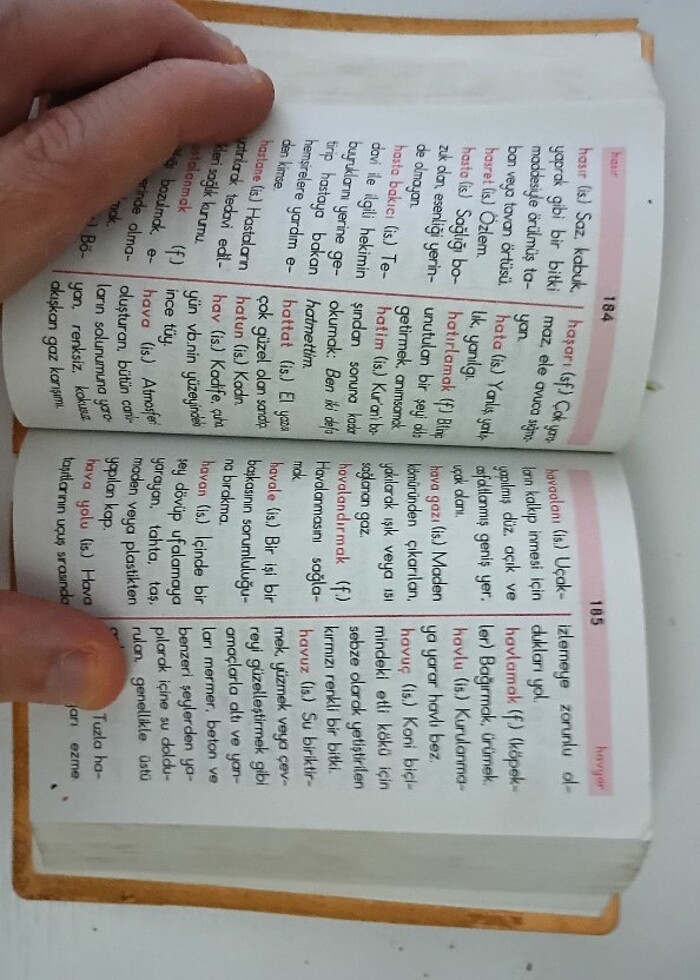 hasır
184
hasır (is.) Saz, kabuk,
yaprak gibi bir bitki
maddesiyle örülmüş ta-
ban veya tavan örtüsü.
hasret (is.) Özlem.
hasta (is.) Sağlığı bo-
zuk olan, esenliği yerin-
de olmayan.
hasta bakıcı (is.) Te-
davi ile ilgili hekimin
buyruklarını yerine ge-
tirip hastaya bakan
hemşirelere yardım e-
den kimse.
hastane (is.) Hastaların
yatırılarak tedavi edil-
kleri sağlık kurumu.
stalanmak (f.)
ğı bozulmak, e-
erinde olma-
mak.
) Bö-
haşarı (sf.) Çok yara-
maz, ele avuca sığma-
yan.
hata (is.) Yanlış, yanlış-
lık, yanılgı.
hatırlamak (f.) Bilinip
unutulan bir şeyi akla
getirmek, anımsamak.
hatim (is.) Kur'an'ı ba-
şından sonuna kadar
okumak: Ben iki defa
hatmettim.
hattat (is.) El yazısı
çok güzel olan sanatçı.
hatun (is.) Kadın.
hav (is.) Kadife, çuha,
yün vb.nin yüzeyindeki
ince tüy.
hava (is.) Atmosferi
oluşturan, bütün canlı-
ların solunumuna yara-
yan, renksiz, kokusuz,
akışkan gaz karışımı.
185
havyar
havaalanı (is.) Uçak-
ların kalkıp inmesi için
yapılmış düz, açık ve
asfaltlanmış geniş yer,
uçak alanı.
hava gazı (is.) Maden
kömüründen çıkarılan,
yakılarak ışık veya ısı
sağlanan gaz.
havalandırmak (f.)
Havalanmasını sağla-
mak.
havale (is.) Bir işi bir
başkasının sorumluluğu-
na bırakma.
havan (is.) İçinde bir
şey dövüp ufalamaya
yarayan, tahta, taş,
maden veya plastikten
yapılan kap.
hava yolu (is.) Hava
taşıtlarının uçuş sırasında
izlemeye zorunlu ol-
dukları yol.
havlamak (f.) (köpek-
ler) Bağırmak, ürümek.
havlu (is.) Kurulanma-
ya yarar havlı bez.
havuç (is.) Koni biçi-
mindeki etli kökü için
sebze olarak yetiştirilen
kırmızı renkli bir bitki.
havuz (is.) Su biriktir-
mek, yüzmek veya çev-
reyi güzelleştirmek gibi
amaçlarla altı ve yan-
ları mermer, beton ve
benzeri şeylerden ya-
pılarak içine su doldu-
rulan, genellikle üstü
Tuzla ha-
yarı ezme